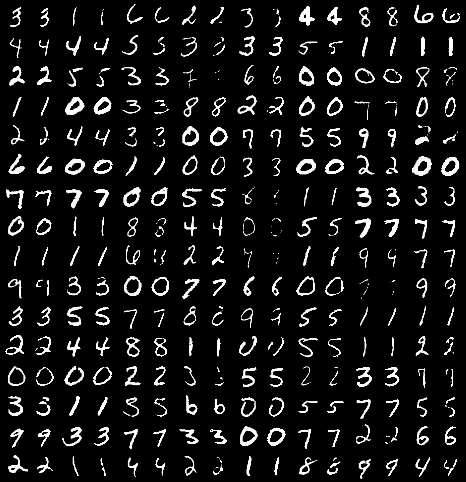 3 3 1 1 6 6 2 2 3 3 4 4 8 8 6 6
4 4 4 4 5 5 3 3 3 3 5 5 1 1 1 1
2 2 5 5 3 3 7 6 6 0 0 0 0 8 8
1 1 0 0 3 3 8 8 2 2 0 0 7 7 0 0
2 2 4 4 3 3 0 0 7 7 5 5 9 9 2 2
6 6 0 0 1 1 0 0 3 3 0 0 2 2 0 0
7 7 7 7 0 0 5 5 1 1 3 3 3 3
0 0 1 1 8 8 4 4 0 0 5 5 7 7 7 7
1 1 1 1 6 2 2 1 1 9 9 7 7
9 9 3 3 0 0 7 7 6 6 0 0 9 9
3 3 5 5 7 7 8 8 9 9 5 5 1 1 1 1
2 2 4 4 8 8 1 1 0 0 5 5 1 1 2 2
0 0 0 0 2 2 3 3 5 5 2 2 3 3 9 9
3 3 1 1 5 5 6 6 0 0 5 5 7 7 5 5
9 9 3 3 7 7 3 3 0 0 7 7 2 2 6 6
2 2 1 1 4 4 2 2 1 1 8 8 9 9 4 4